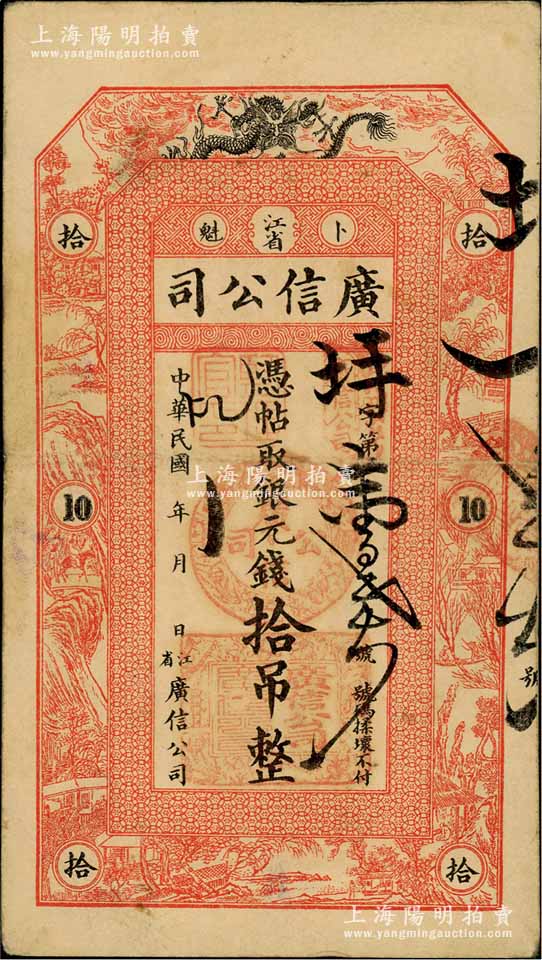 上海陽明拍賣
www.yangmingauction.com
拾
拾
卜
江省
魁
廣信公司
字第
號
號碼揉壞不付
憑帖取銀元錢拾吊整
中華民國 年 月 日
江省廣信公司
10
10
號
上海陽明拍賣
www.yangmingauction.com
拾
拾
上海陽明拍賣
www.yangmingauction.com